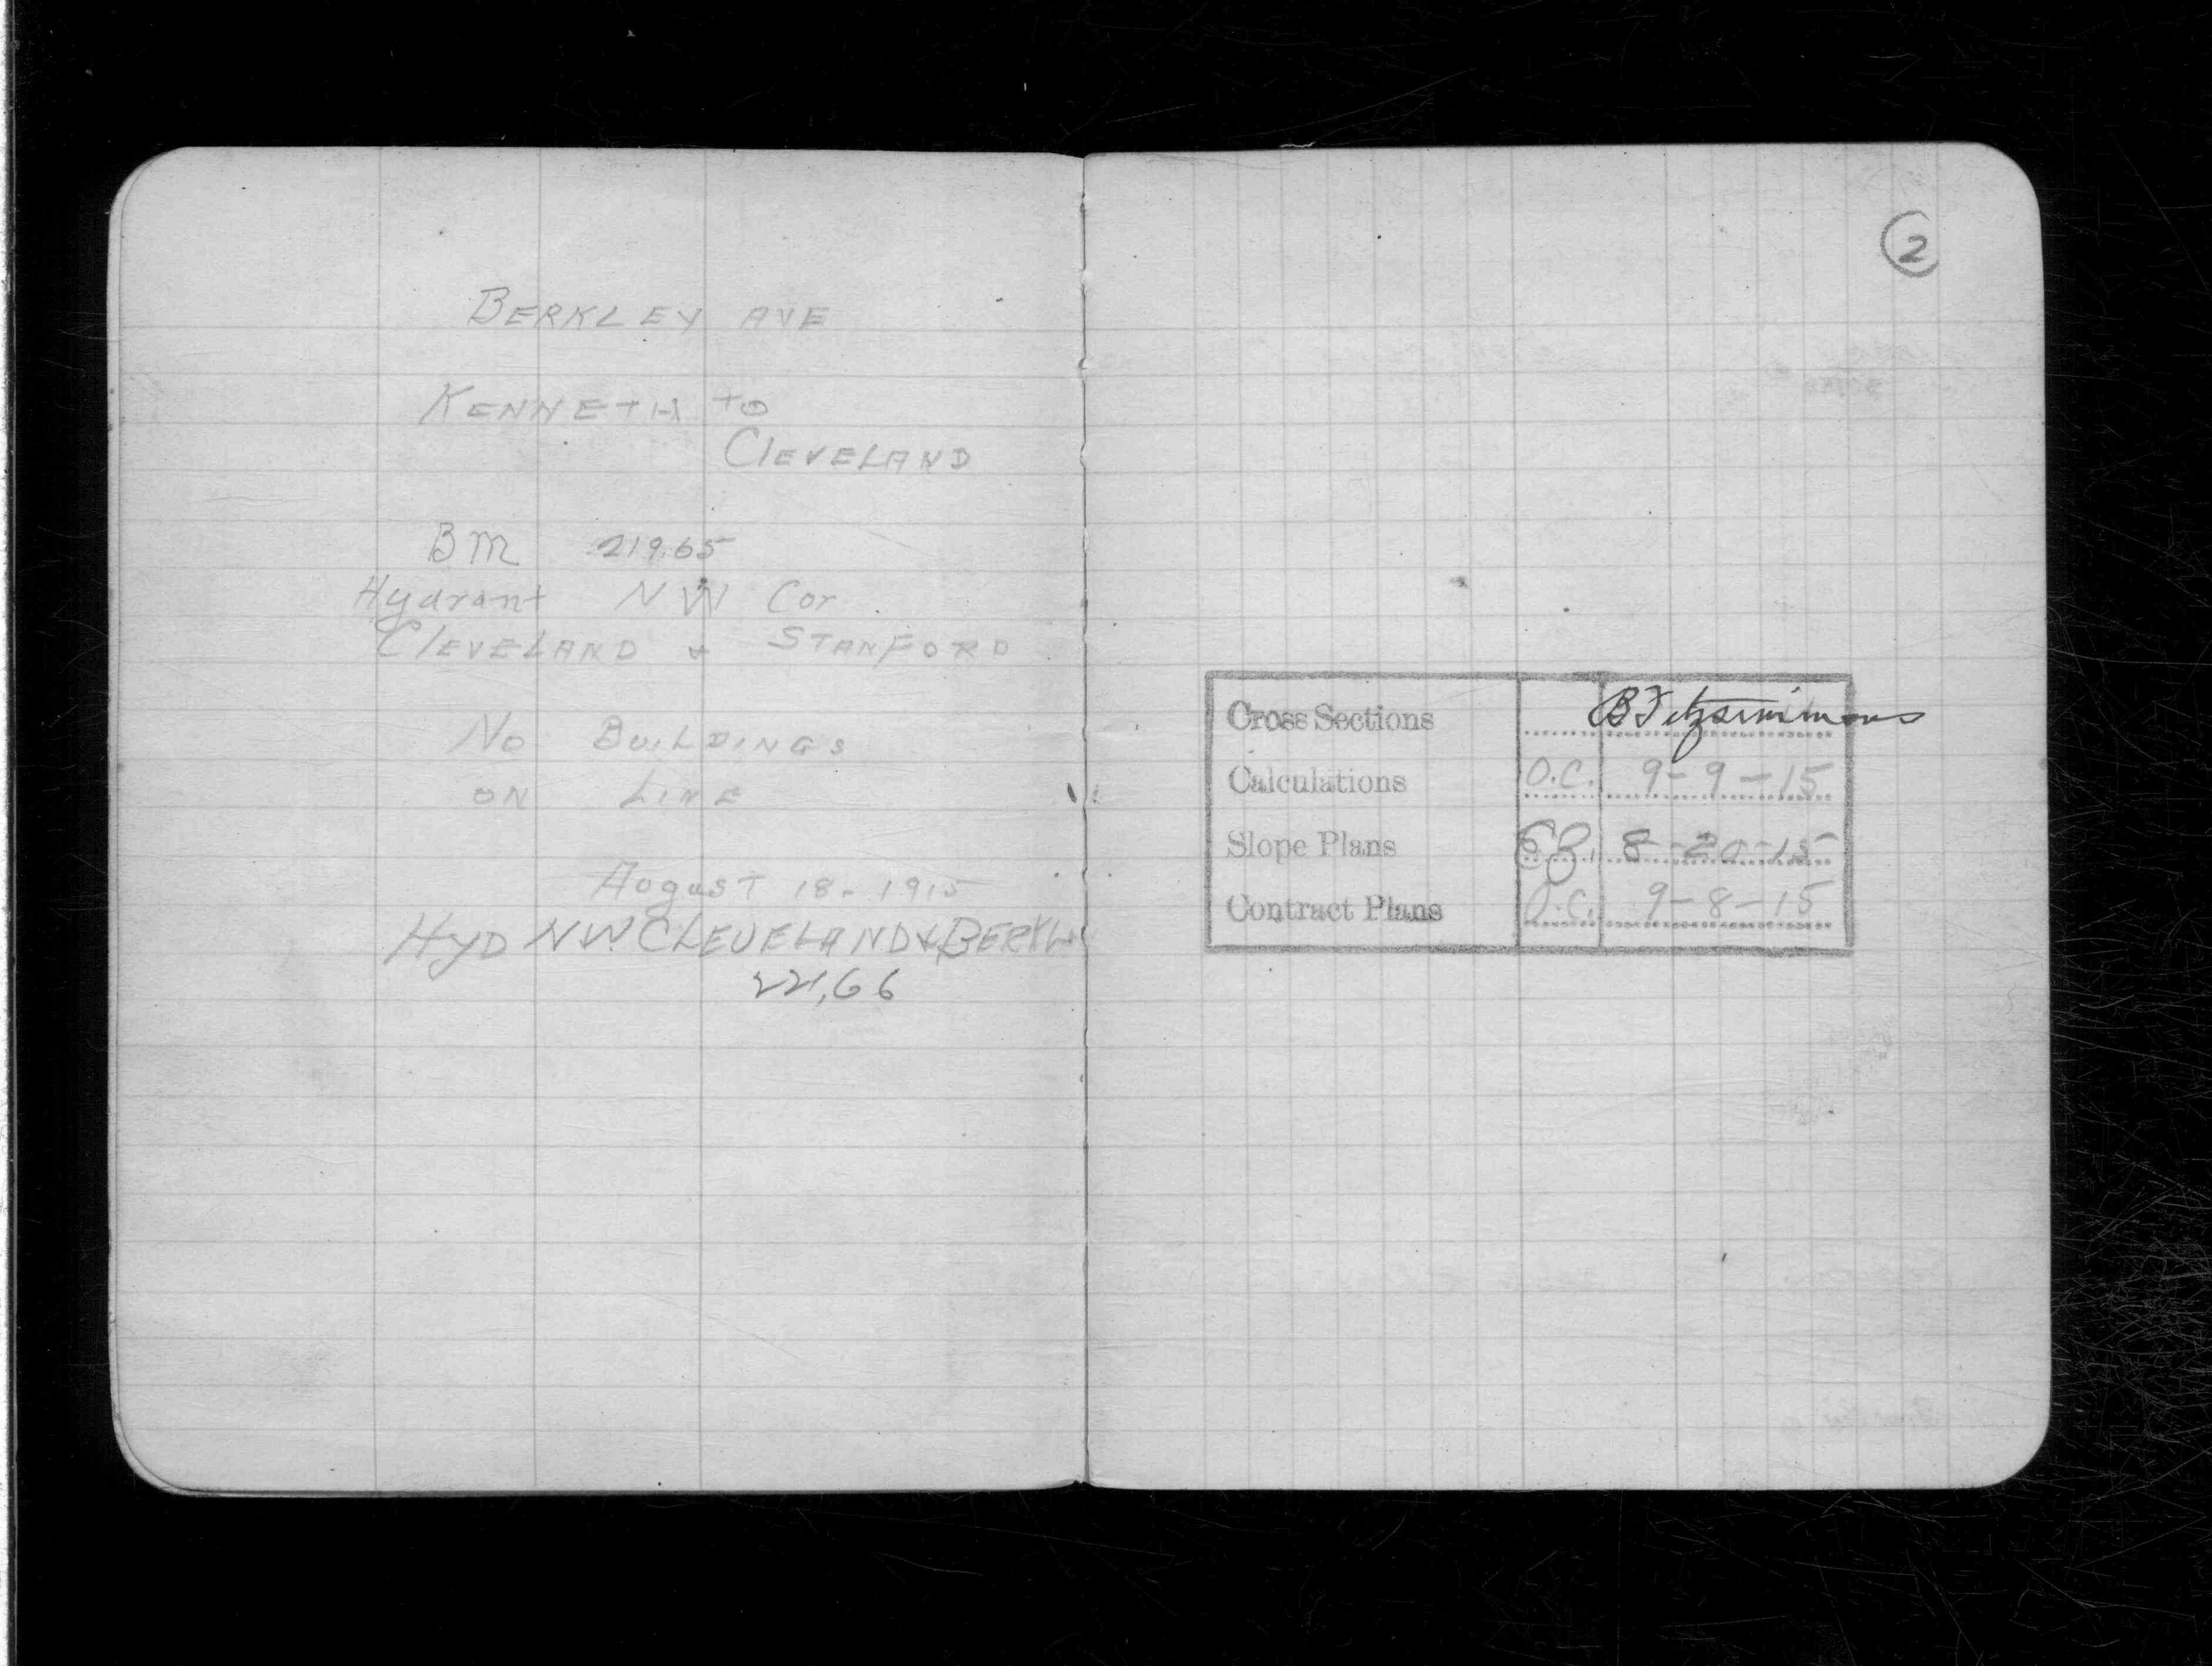 BERKLEY AVE
KENNETH to
CLEVELAND
BM 219.65
Hydrant NW Cor
CLEVELAND & STANFORD
No BUILDINGS
ON LINE
August 18 - 1915
HYD N.W. CLEVELAND & BERKL
221.66
2
Cross Sections B Fitzsimimons
Calculations O.C. 9-9-15
Slope Plans 8-20-15
Contract Plans O.C. 9-8-15